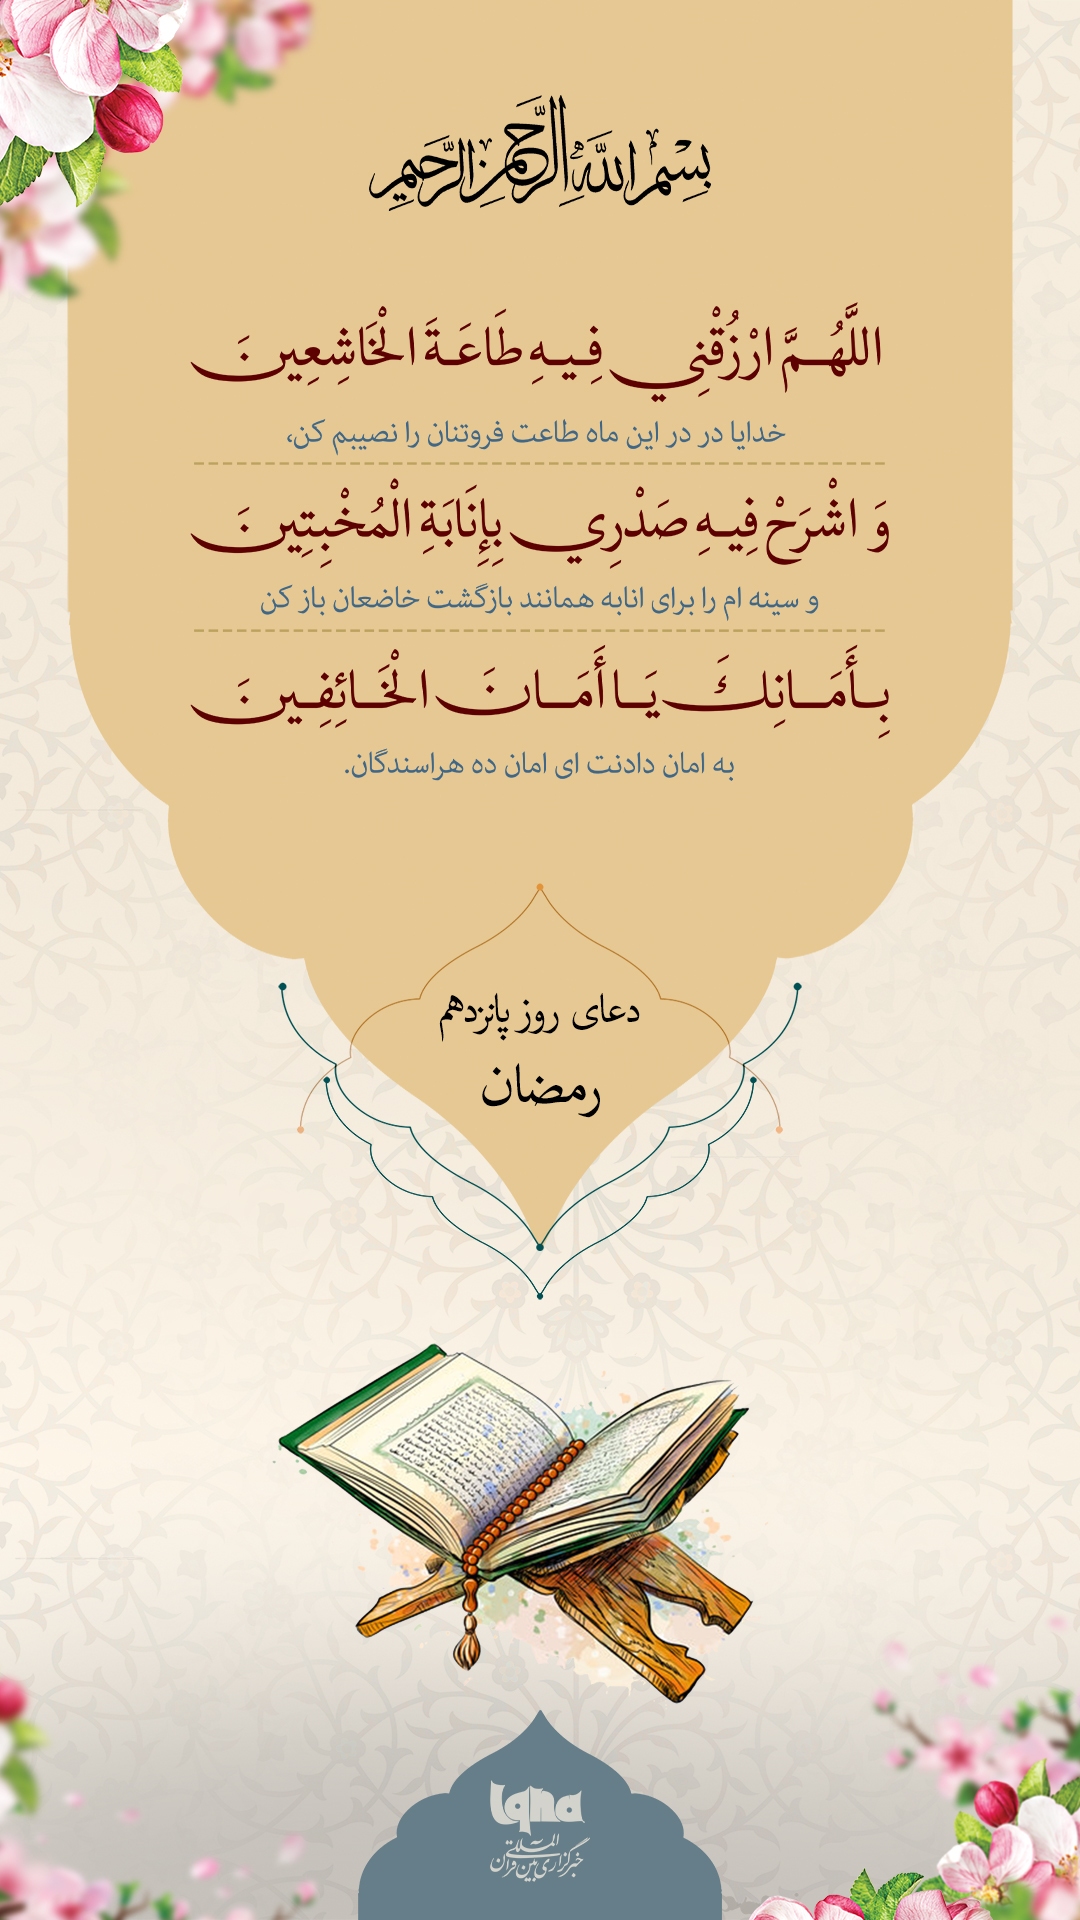 بِسْمِ اللَّهِ الرَّحْمَنِ الرَّحِيمِ
اللَّهُمَّ ارْزُقْنِي فِيهِ طَاعَةَ الْخَاشِعِينَ
خدایا در در این ماه طاعت فروتنان را نصیبم کن،
وَ اشْرَحْ فِيهِ صَدْرِي بِإِنَابَةِ الْمُخْبِتِينَ
و سینه ام را برای انابه همانند بازگشت خاضعان باز کن
بِأَمَانِكَ يَا أَمَانَ الْخَائِفِينَ
به امان دادنت ای امان ده هراسندگان.
دعای روز پانزدهم
رمضان
iqna
خبرگزاری بین المللی قرآن